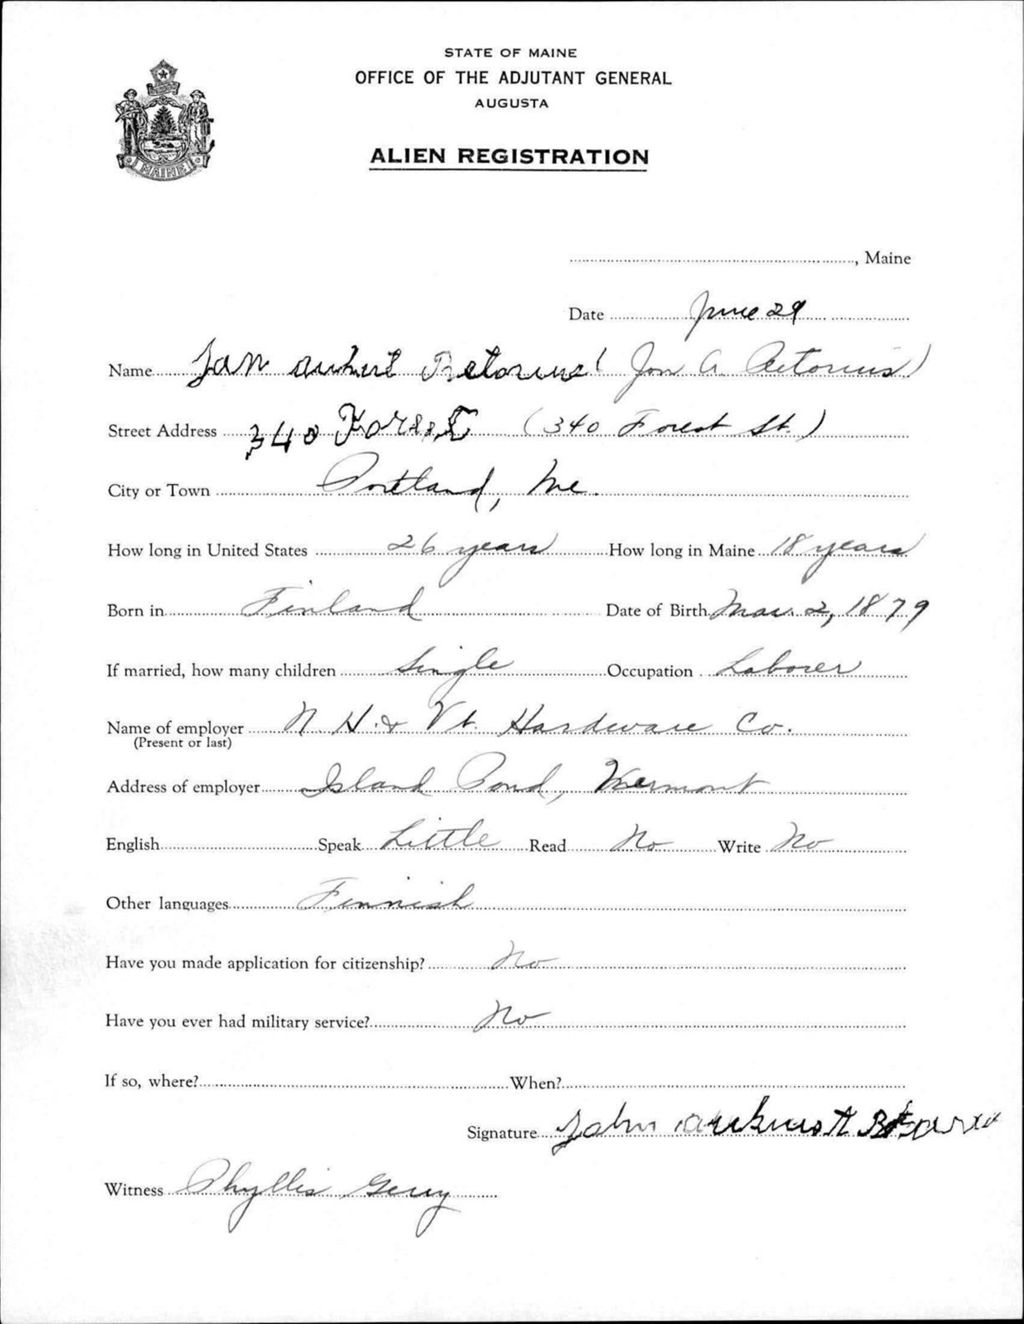 STATE OF MAINE
OFFICE OF THE ADJUTANT GENERAL
AUGUSTA
ALIEN REGISTRATION
MAINE
, Maine
Date June 29
Name Jan (Jon A.
Street Address 340 Forest (340 Forest St.)
City or Town Portland, Me.
How long in United States 26 years How long in Maine 18 years
Born in Finland Date of Birth Mar. 2, 1879
If married, how many children Single Occupation Laborer
Name of employer N. H. & Vt. Hardware Co.
(Present or last)
Address of employer Island Pond, Vermont
English Speak Little Read No Write No
Other languages Finnish
Have you made application for citizenship? No
Have you ever had military service? No
If so, where? When?
Signature John
Witness Phyllis Gerry